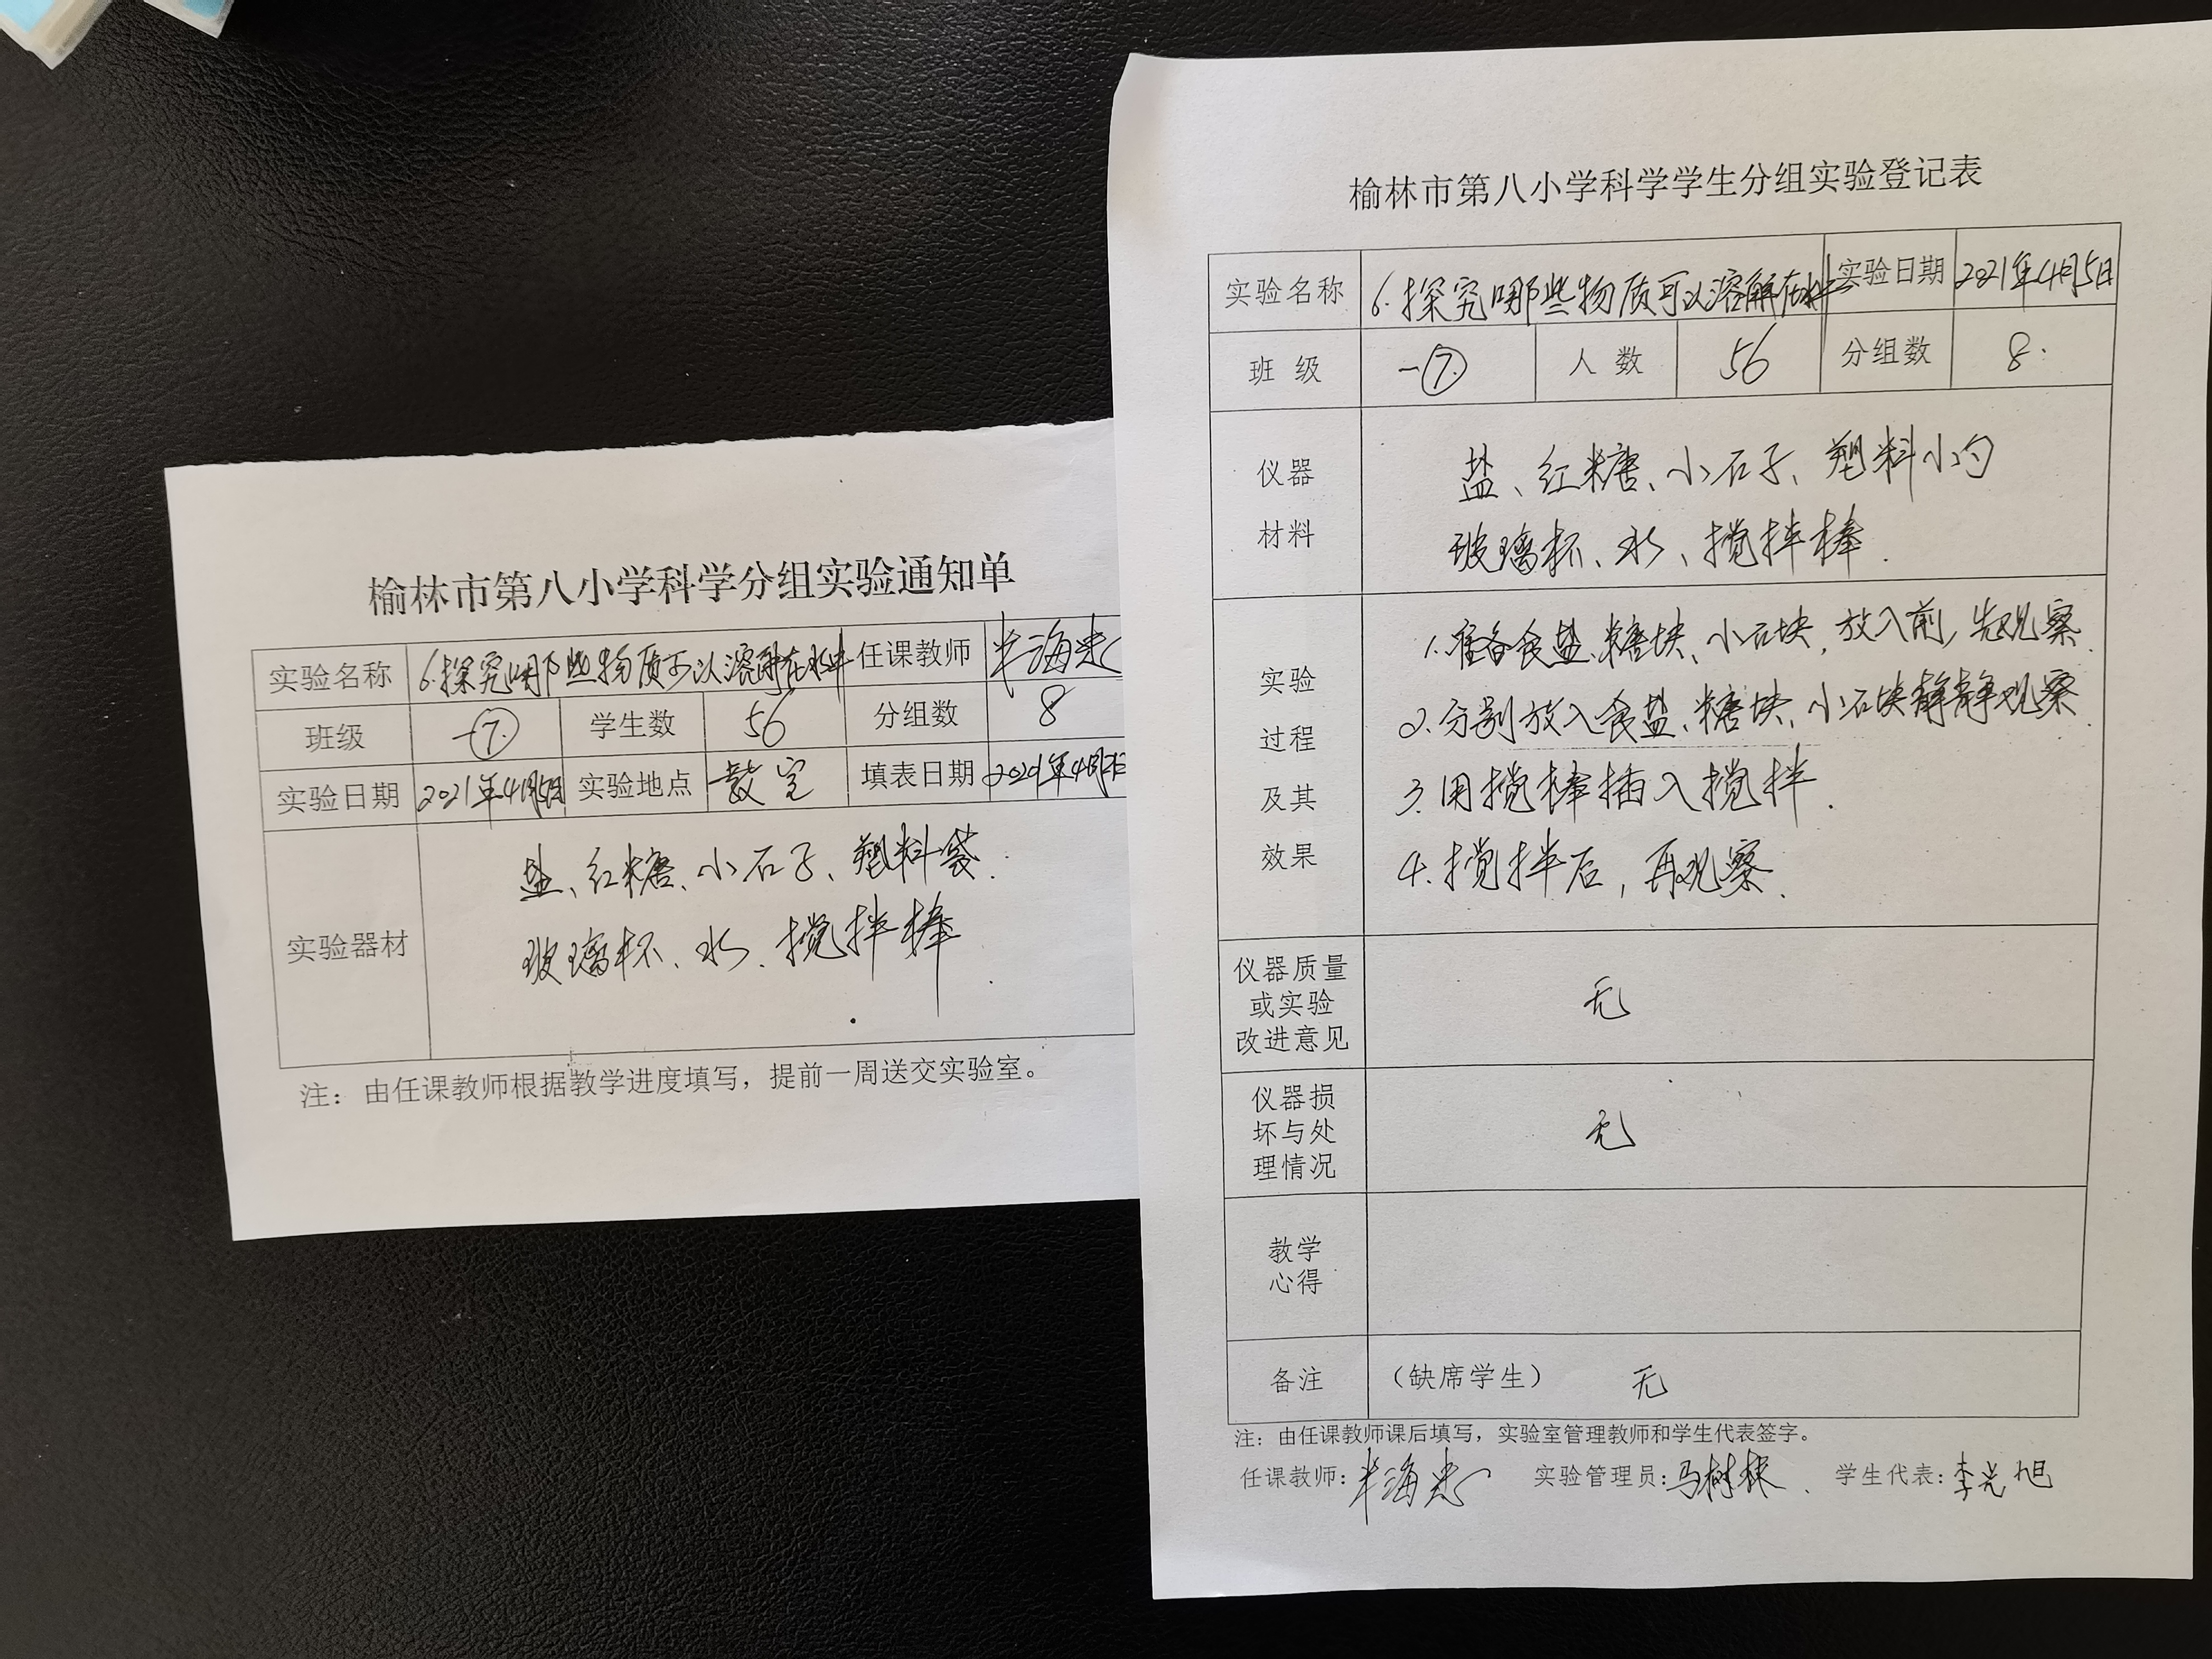 榆林市第八小学科学分组实验通知单
实验名称 6.探究哪些物质可以溶解在水中 任课教师
班级 一⑦ 学生数 56 分组数 8
实验日期 2021年4月5日 实验地点 教室 填表日期
实验器材
盐、红糖、小石子、塑料袋.
玻璃杯、水、搅拌棒
注：由任课教师根据教学进度填写，提前一周送交实验室。
榆林市第八小学科学学生分组实验登记表
实验名称 6.探究哪些物质可以溶解在水中 实验日期 2021年4月5日
班 级 一⑦ 人 数 56 分组数 8.
仪器
材料
盐、红糖、小石子、塑料小勺
玻璃杯、水、搅拌棒.
实验
过程
及其
效果
1.准备食盐、糖块、小石块，放入前，先观察.
2.分别放入食盐、糖块、小石块静静观察.
3.用搅棒插入搅拌.
4.搅拌后，再观察.
仪器质量
或实验
改进意见
无
仪器损
坏与处
理情况
无
教学
心得
备注 （缺席学生） 无
注：由任课教师课后填写，实验室管理教师和学生代表签字。
任课教师: 实验管理员:马树林. 学生代表:李光旭